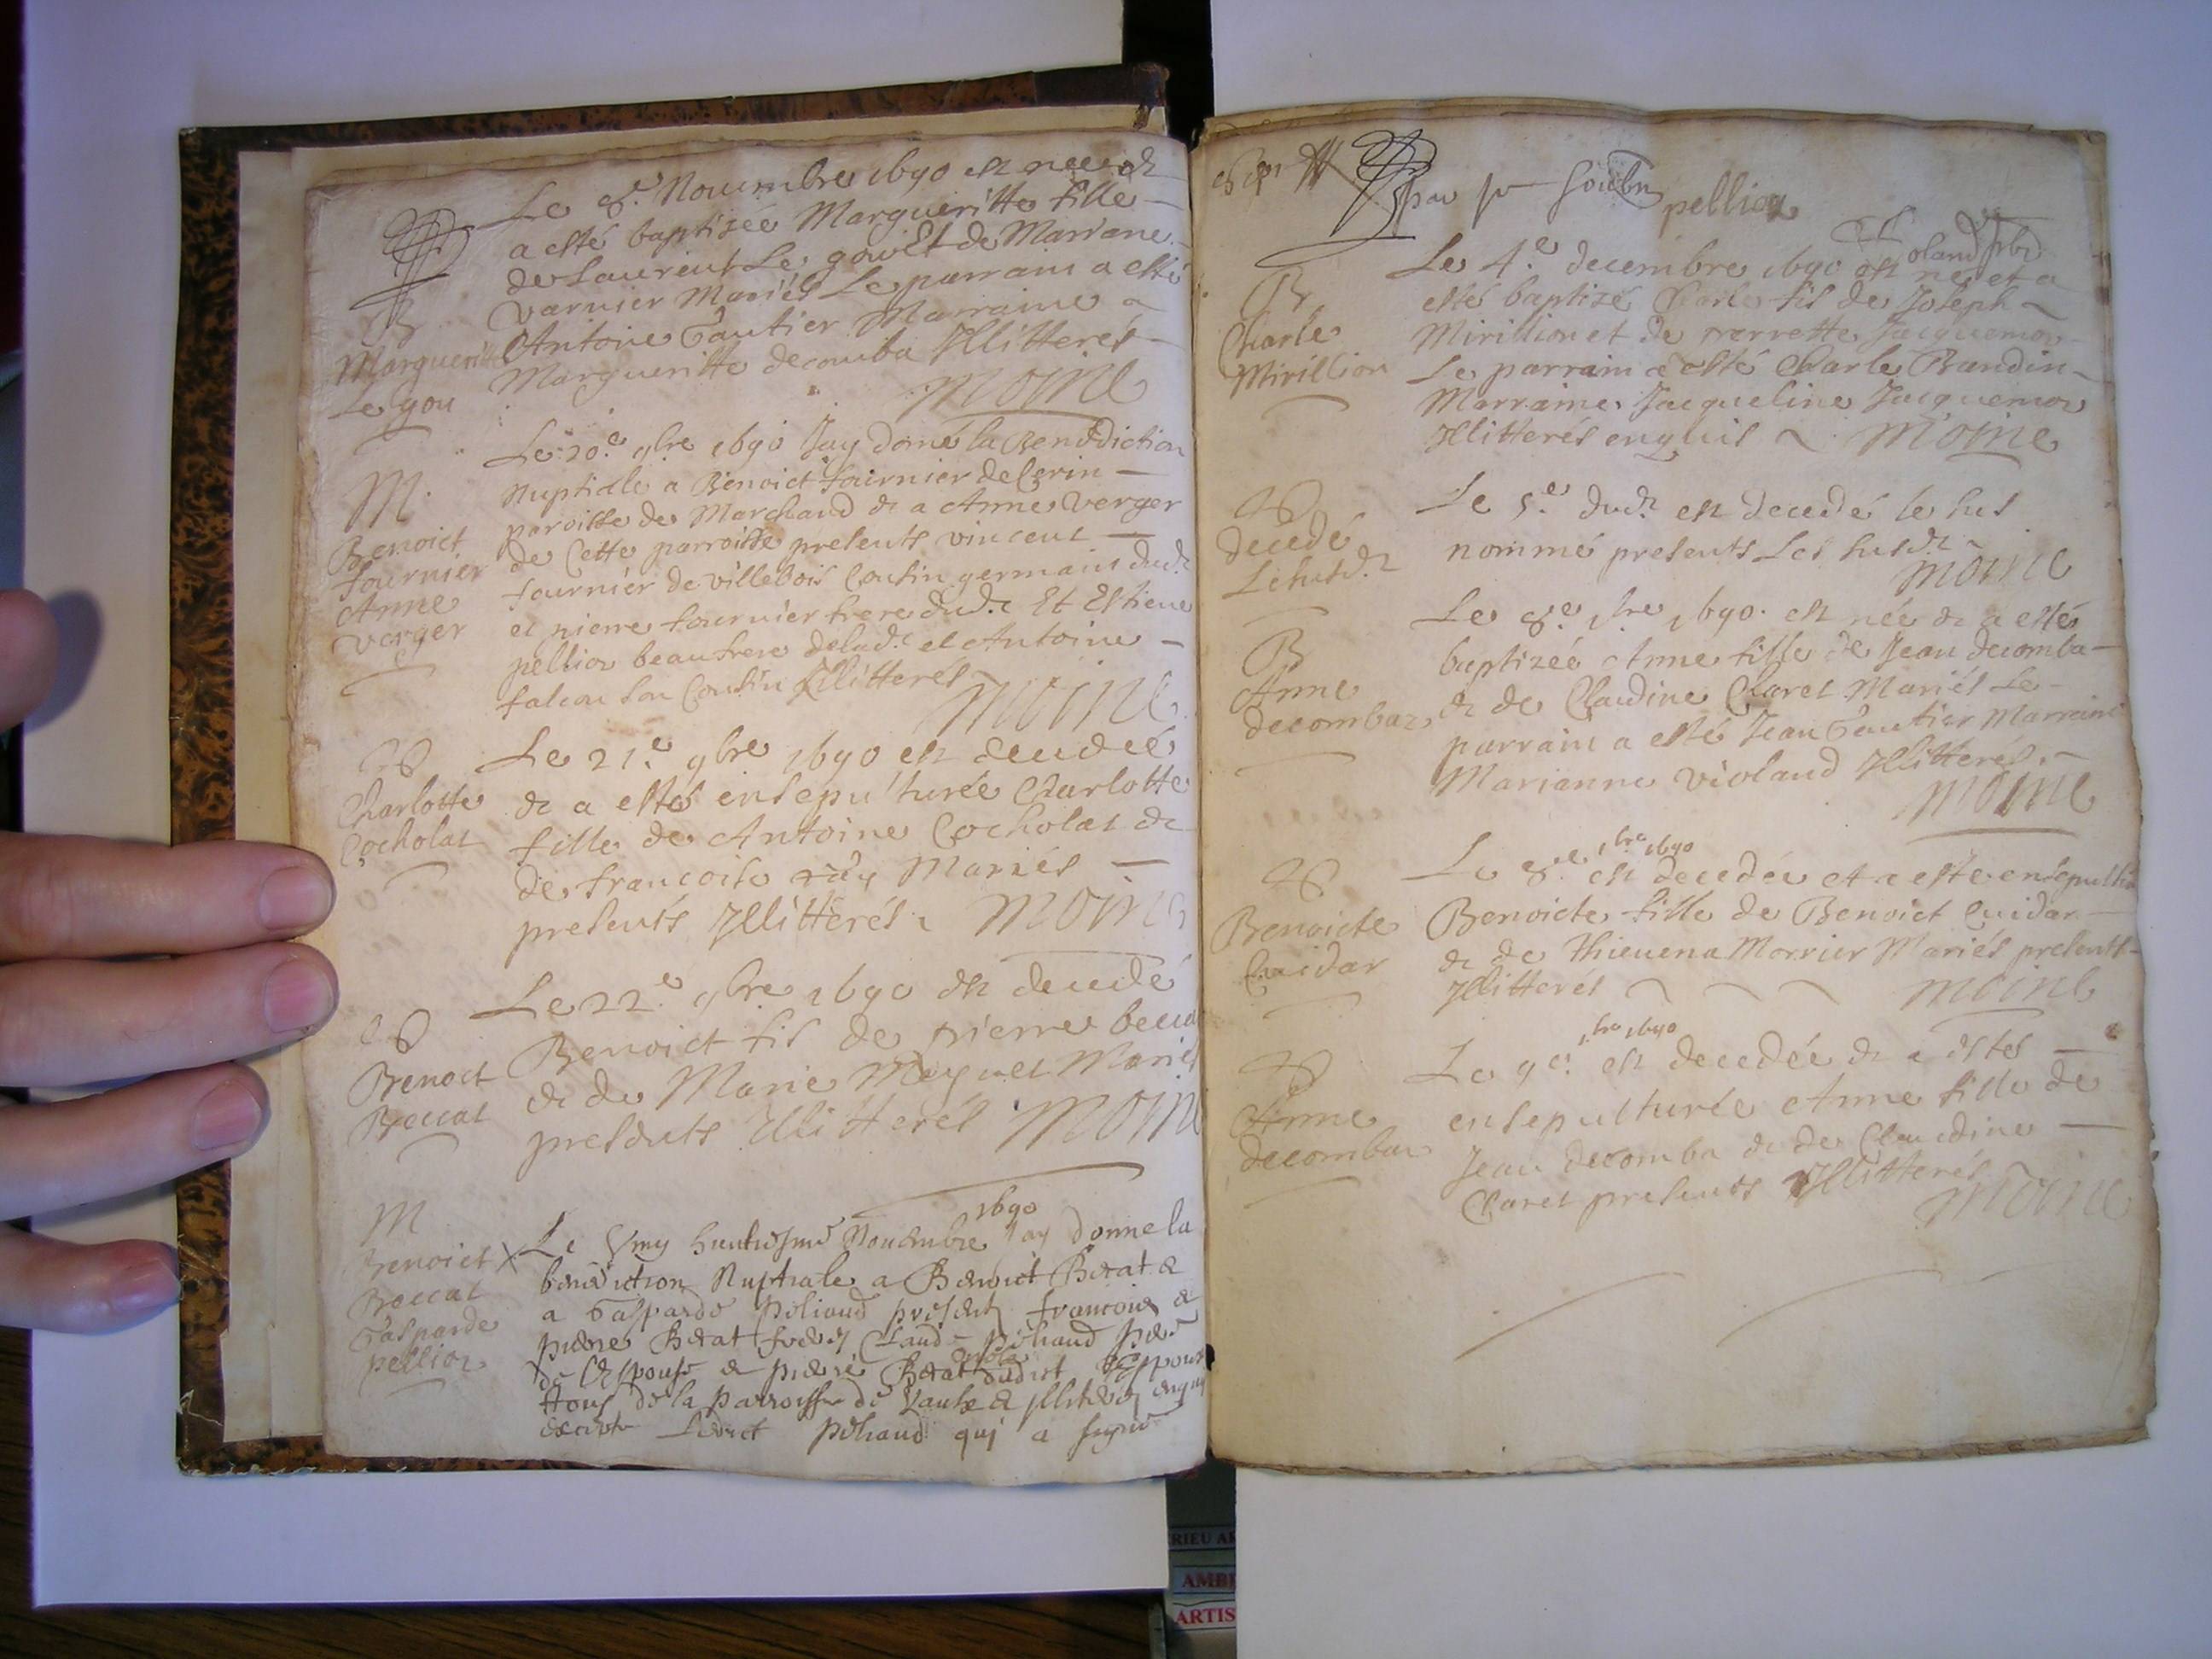 Le 8.e Nouembre 1690 est neee et
a esté baptizée Margueritte fille
de Laurent Le gou Et de Mariane
varnier Mariés Le parrain a esté
Antoine Gautier Marraine
Margueritte decomba Jllitterés
Moine
B
Margueritte
Le gou
Le 20.e 9bre 1690 Jay donné la Benediction
Nuptiale a Benoict fournier de Cerin
paroisse de Marchand et a Anne verger
de Cette parroisse presents vincent
fournier de villebois Cousin germain dud.t
et pierre fournier frere dud.t Et Estiene
pellion beaufrere delad.t et Antoine
falcon son Cousin Jllitterés
Moine
M
Benoict
fournier
Anne
verger
Le 21.e 9bre 1690 est decedée
et a esté ensepulturée Charlotte
fille de Antoine Cocholat et
de francoise Mariés
presents Jllitterés Moine
Charlotte
Cocholat
Le 22.e 9bre 1690 est decedé
Benoict fils de pierre
et de Marie Meynet Mariés
presents Jllitterés Moine
Benoct
Beccat
1690
Le Vint huictiesme Nouembre Jay donne la
benediction Nuptiale a Benoict Becat &
a Gasparde Peliaud presents francois &
pierre Becat freres Claude peliaud pere
de Lespouse & pierre Becat oncle dudict Espoux
tous de la parroisse de Vaulx & Jlliterés enquis
excepte Ledict Peliaud qui a signé
M
Benoict
Beccat
Gasparde
pellion
pellion
Le 4.e decembre 1690 est né et a
esté baptizé Charle fils de Joseph
Mirillion et de perrette Jacquemon
Le parrain a esté Charle Baudin
Marraine Jacqueline Jacquemon
Jllitterés enquis Moine
B
Charle
Mirillion
Le 5.e dud.t est decedé le sus
nommé presents Les susd.t
Moine
decedé
Le susd.t
Le 8.e xbre 1690. est née et a esté
baptizée Anne fille de Jean decomba
et de Claudine Claret Mariés Le
parrain a esté Jean Gautier Marraine
Marianne violand Jllitterés
Moine
B
Anne
decombaz
xbre 1690
Le 8.e est decedée et a esté ensepulturée
Benoicte fille de Benoict Cuidar
et de Thieuena Morrier Mariés presents
Jllitterés Moine
Benoicte
Cuidar
xbre 1690
Le 9e. est decedée et a esté
ensepulturée Anne fille de
Jean decomba et de Claudine
Claret presents Jllitterés
Moine
Anne
decombaz
AMBE
ARTIS